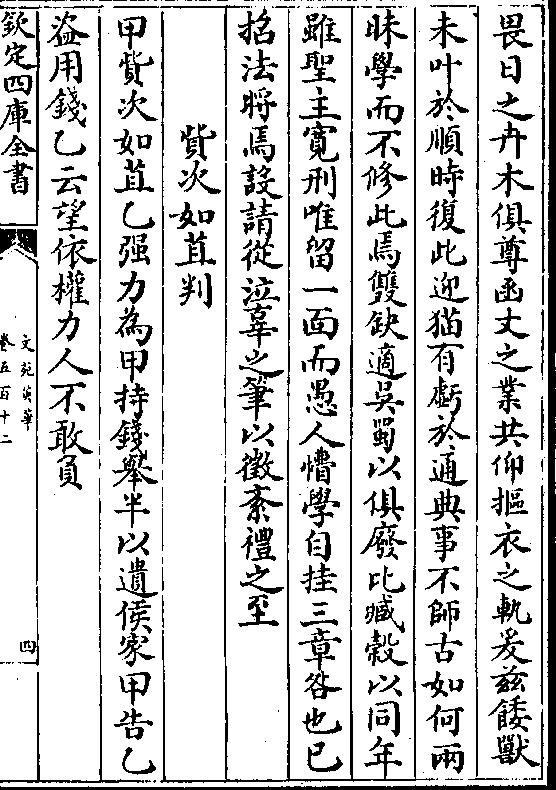 畏日之卉木俱尊函丈之業共仰摳衣之軌爰茲餧獸
未叶於順時復此迎猫有虧於通典事不師古如何兩
昧學而不修此焉雙缺適吳蜀以俱廢比臧穀以同年
雖聖主寛刑唯留一面而愚人懵學自挂三章咎也已
招法將焉設請從泣辜之筆以徵紊禮之至
貲次如苴判
甲貲次如苴乙强力為甲持錢舉半以遺侯家甲告乙
盗用錢乙云望依權力人不敢負
欽定四庫全書
文苑英華
卷五百十二
四